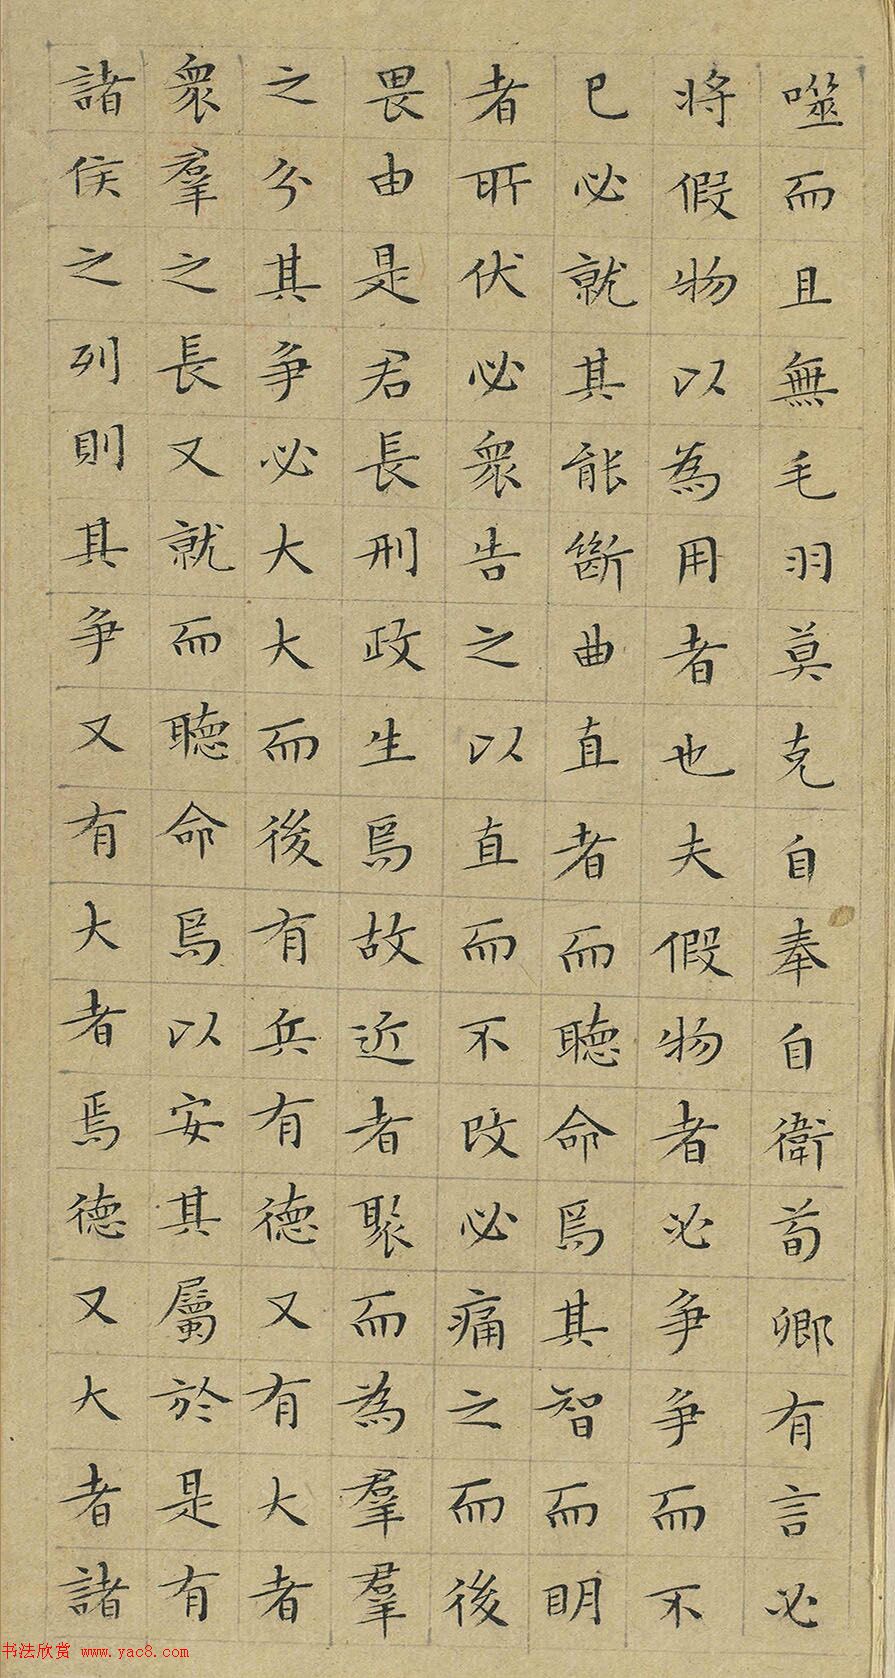 噬而且無毛羽莫克自奉自衛荀卿有言必
將假物以為用者也夫假物者必爭爭而不
已必就其能斷曲直者而聽命焉其智而明
者所伏必衆告之以直而不改必痛之而後
畏由是君長刑政生焉故近者聚而為羣羣
之分其爭必大大而後有兵有德又有大者
衆羣之長又就而聽命焉以安其屬於是有
諸侯之列則其爭又有大者焉德又大者諸
书法欣赏 www.yac8.com